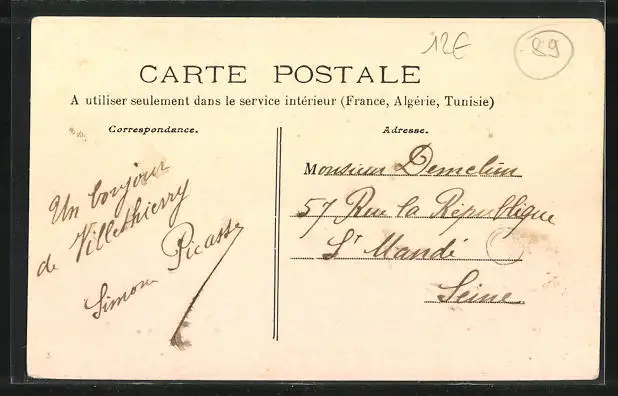 12€
89
CARTE POSTALE
A utiliser seulement dans le service intérieur (France, Algérie, Tunisie)
Correspondance.
Un bonjour
de Villethierry
Simone Picasse
Adresse.
Monsieur Demelin
57 Rue la République
St Mandé
Seine